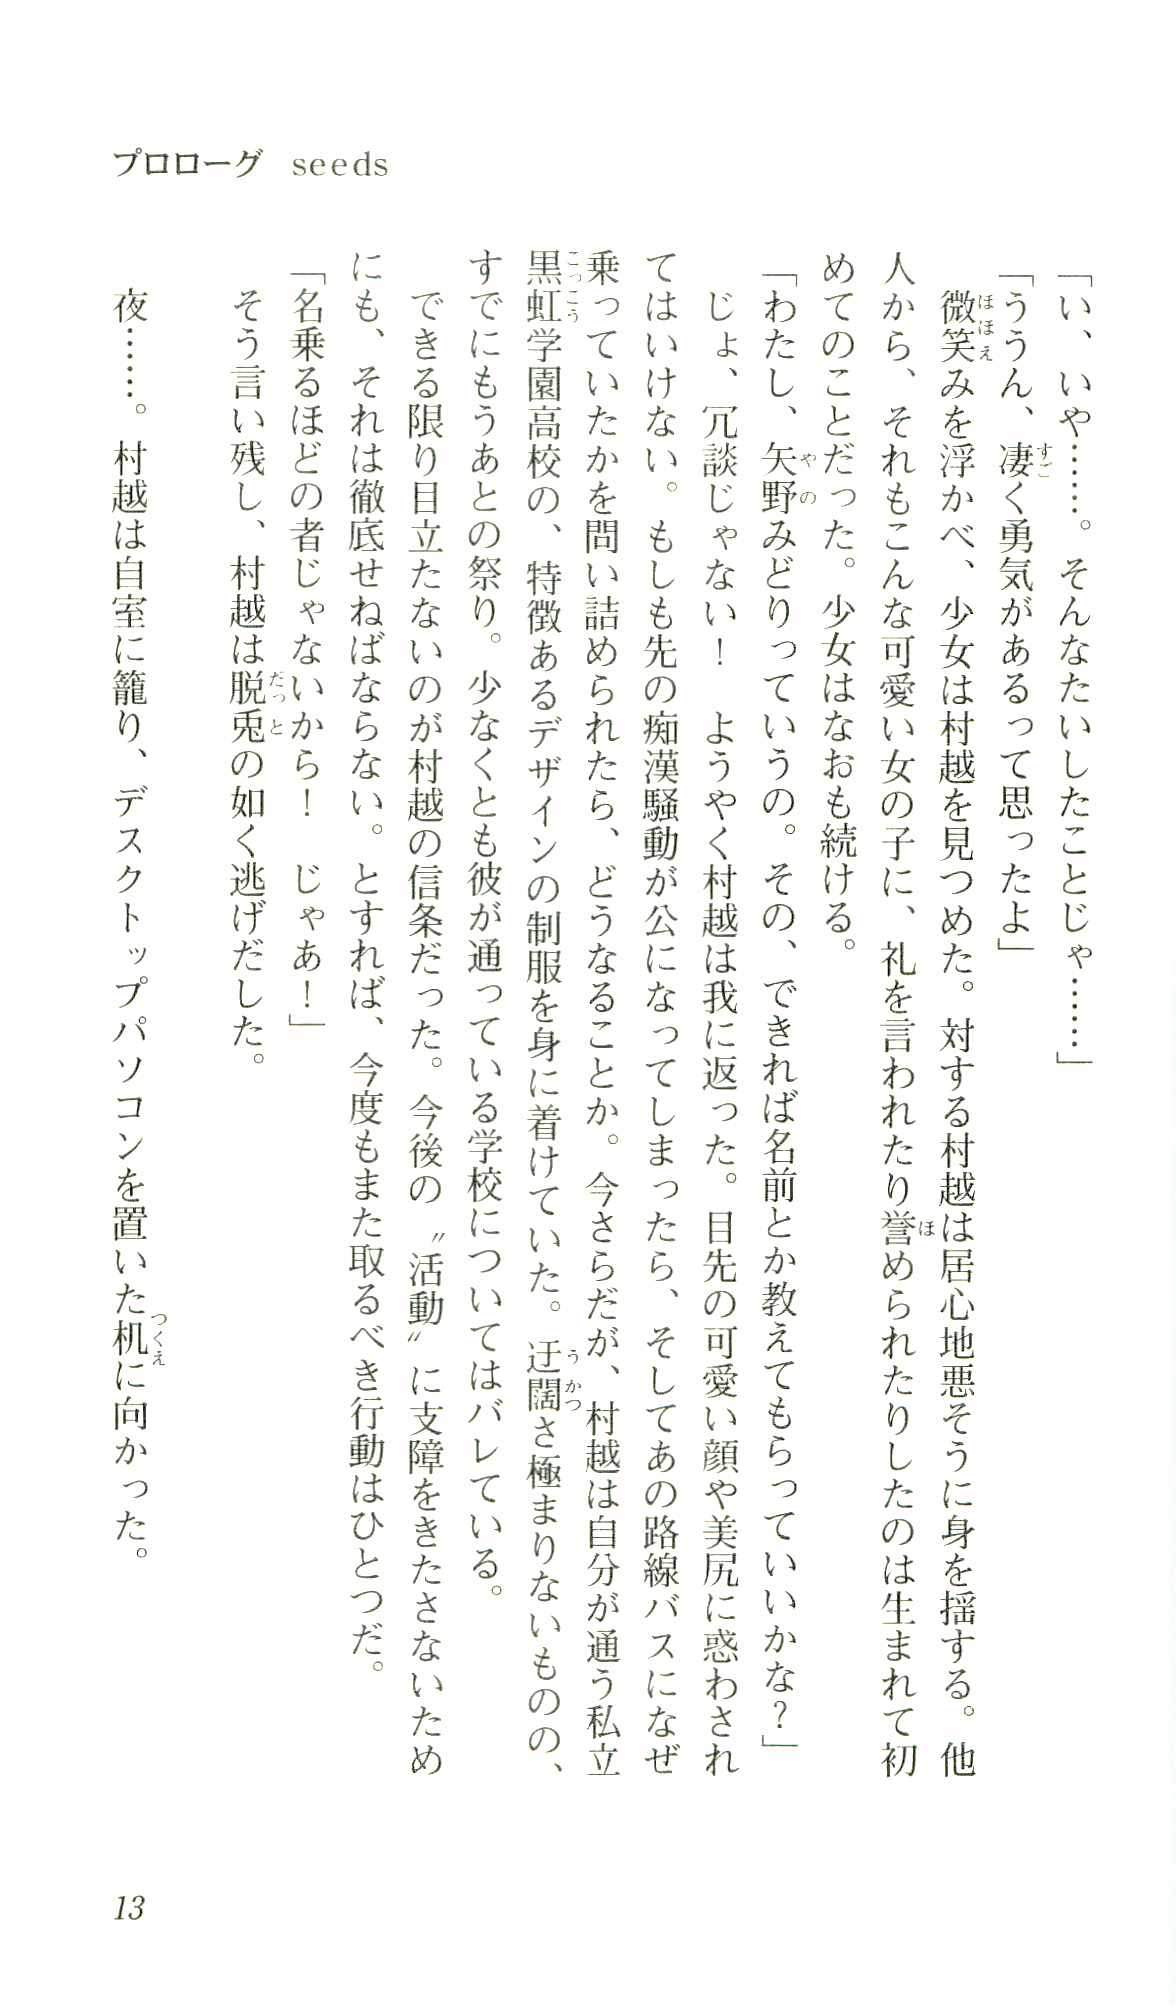 プロローグ　seeds
「い、いや……。そんなたいしたことじゃ……」
「ううん、凄く勇気があるって思ったよ」
　微笑みを浮かべ、少女は村越を見つめた。対する村越は居心地悪そうに身を揺する。他
人から、それもこんな可愛い女の子に、礼を言われたり誉められたりしたのは生まれて初
めてのことだった。少女はなおも続ける。
「わたし、矢野みどりっていうの。その、できれば名前とか教えてもらっていいかな？」
　じょ、冗談じゃない！　ようやく村越は我に返った。目先の可愛い顔や美尻に惑わされ
てはいけない。もしも先の痴漢騒動が公になってしまったら、そしてあの路線バスになぜ
乗っていたかを問い詰められたら、どうなることか。今さらだが、村越は自分が通う私立
黒虹学園高校の、特徴あるデザインの制服を身に着けていた。迂闊さ極まりないものの、
すでにもうあとの祭り。少なくとも彼が通っている学校についてはバレている。
　できる限り目立たないのが村越の信条だった。今後の〝活動〟に支障をきたさないため
にも、それは徹底せねばならない。とすれば、今度もまた取るべき行動はひとつだ。
「名乗るほどの者じゃないから！　じゃあ！」
　そう言い残し、村越は脱兎の如く逃げだした。
　夜……。村越は自室に籠り、デスクトップパソコンを置いた机に向かった。
13